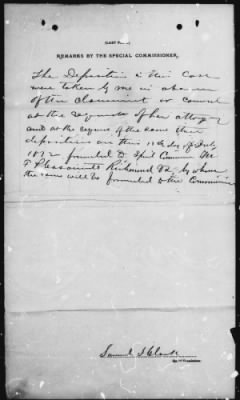 REMARKS BY THE SPECIAL COMMISSIONER.
The Deposition in this Case
were taken by me in absence
of the claimant or council
at the request of her attorney
and at the request of the same these
depositions are this 11th day of July
1872 forwarded to Spl Commr
F Pleasants Richmond Va by whom
the same will be forwarded to the Commissioners
Samuel S Clark